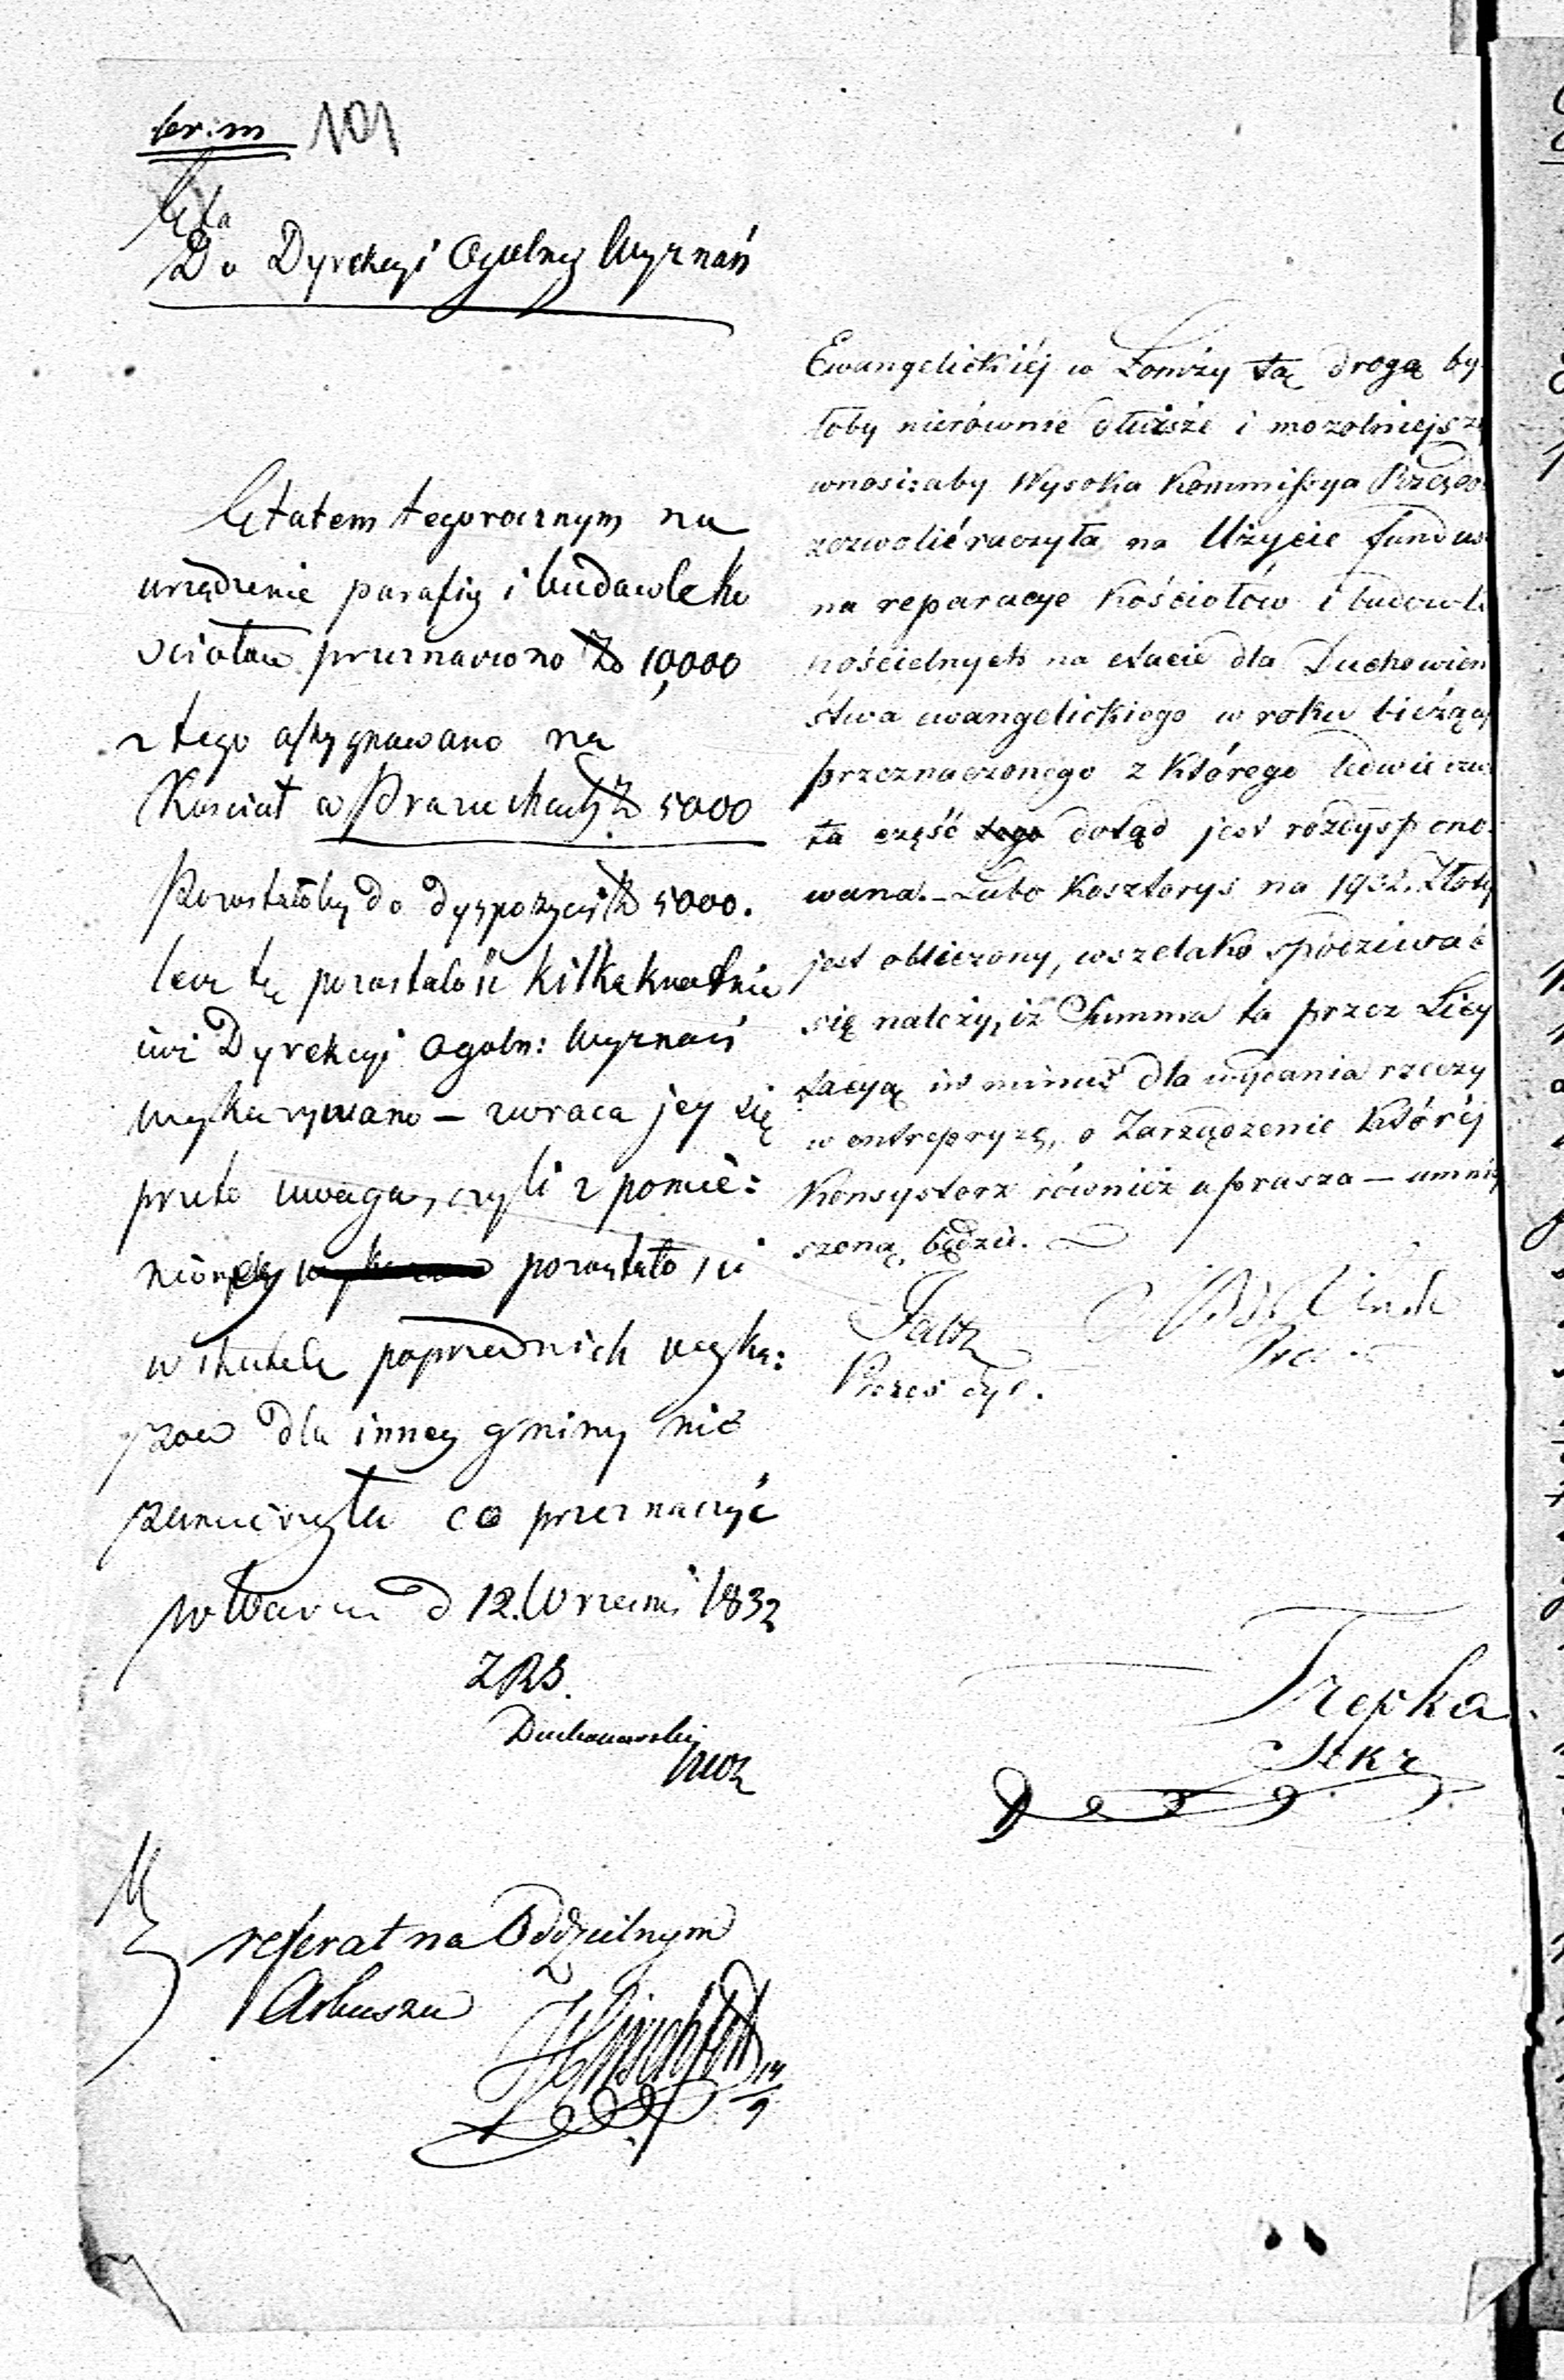 101
Do Dyrekcyi Ogulney Wyznań
Etatem tegorocznym na
urządzenie parafiy i budowle ko
sciołow przeznaczono Zł 10,000
z tego assygnowano na
Kosciół w Prazuchach Zł 5000
Pozostałoby do dyspozycyi Zł 5000.
lecz tę pozostałość kilkakrotnie
Dyrekcyi Ogoln: Wyznań
wykazywano – zwraca jey się
przeto uwagę, czyli z pomie:
nioney pozostałości
w skutek poprzednich wyka:
zow dla inney gminy nie
zamierzyła co przeznaczyć
w Warsza d 12. Wrześni 1832
referat na Oddzielnym
Arkuszu
14/9
Ewangelickiéj w Łomży tą drogą by-
łoby nierównie dłuższe i mozolniejsze
wnosi: aby Wysoka Kommissya Rządo
zezwolić raczyła na Użycie fundus
na reparacye Kościołów i budowli
kościelnych na etacie dla Duchowień
stwa ewangelickiego w roku bieżący
przeznaczonego z którego ledwie czw
ta część tego dotąd jest rozdyspono-
wana. – Lubo Kosztorys na 1932. Złoty
jest obliczony, wszelako spodziewać
się należy, iż Summa ta przez Licy
tacyą in minus dla wydania rzeczy
w entrepryzę, o Zarządzenie któréj
Konsystorz również uprasza – umniey
szoną będzie.
Prezes
Trepka
Sekr